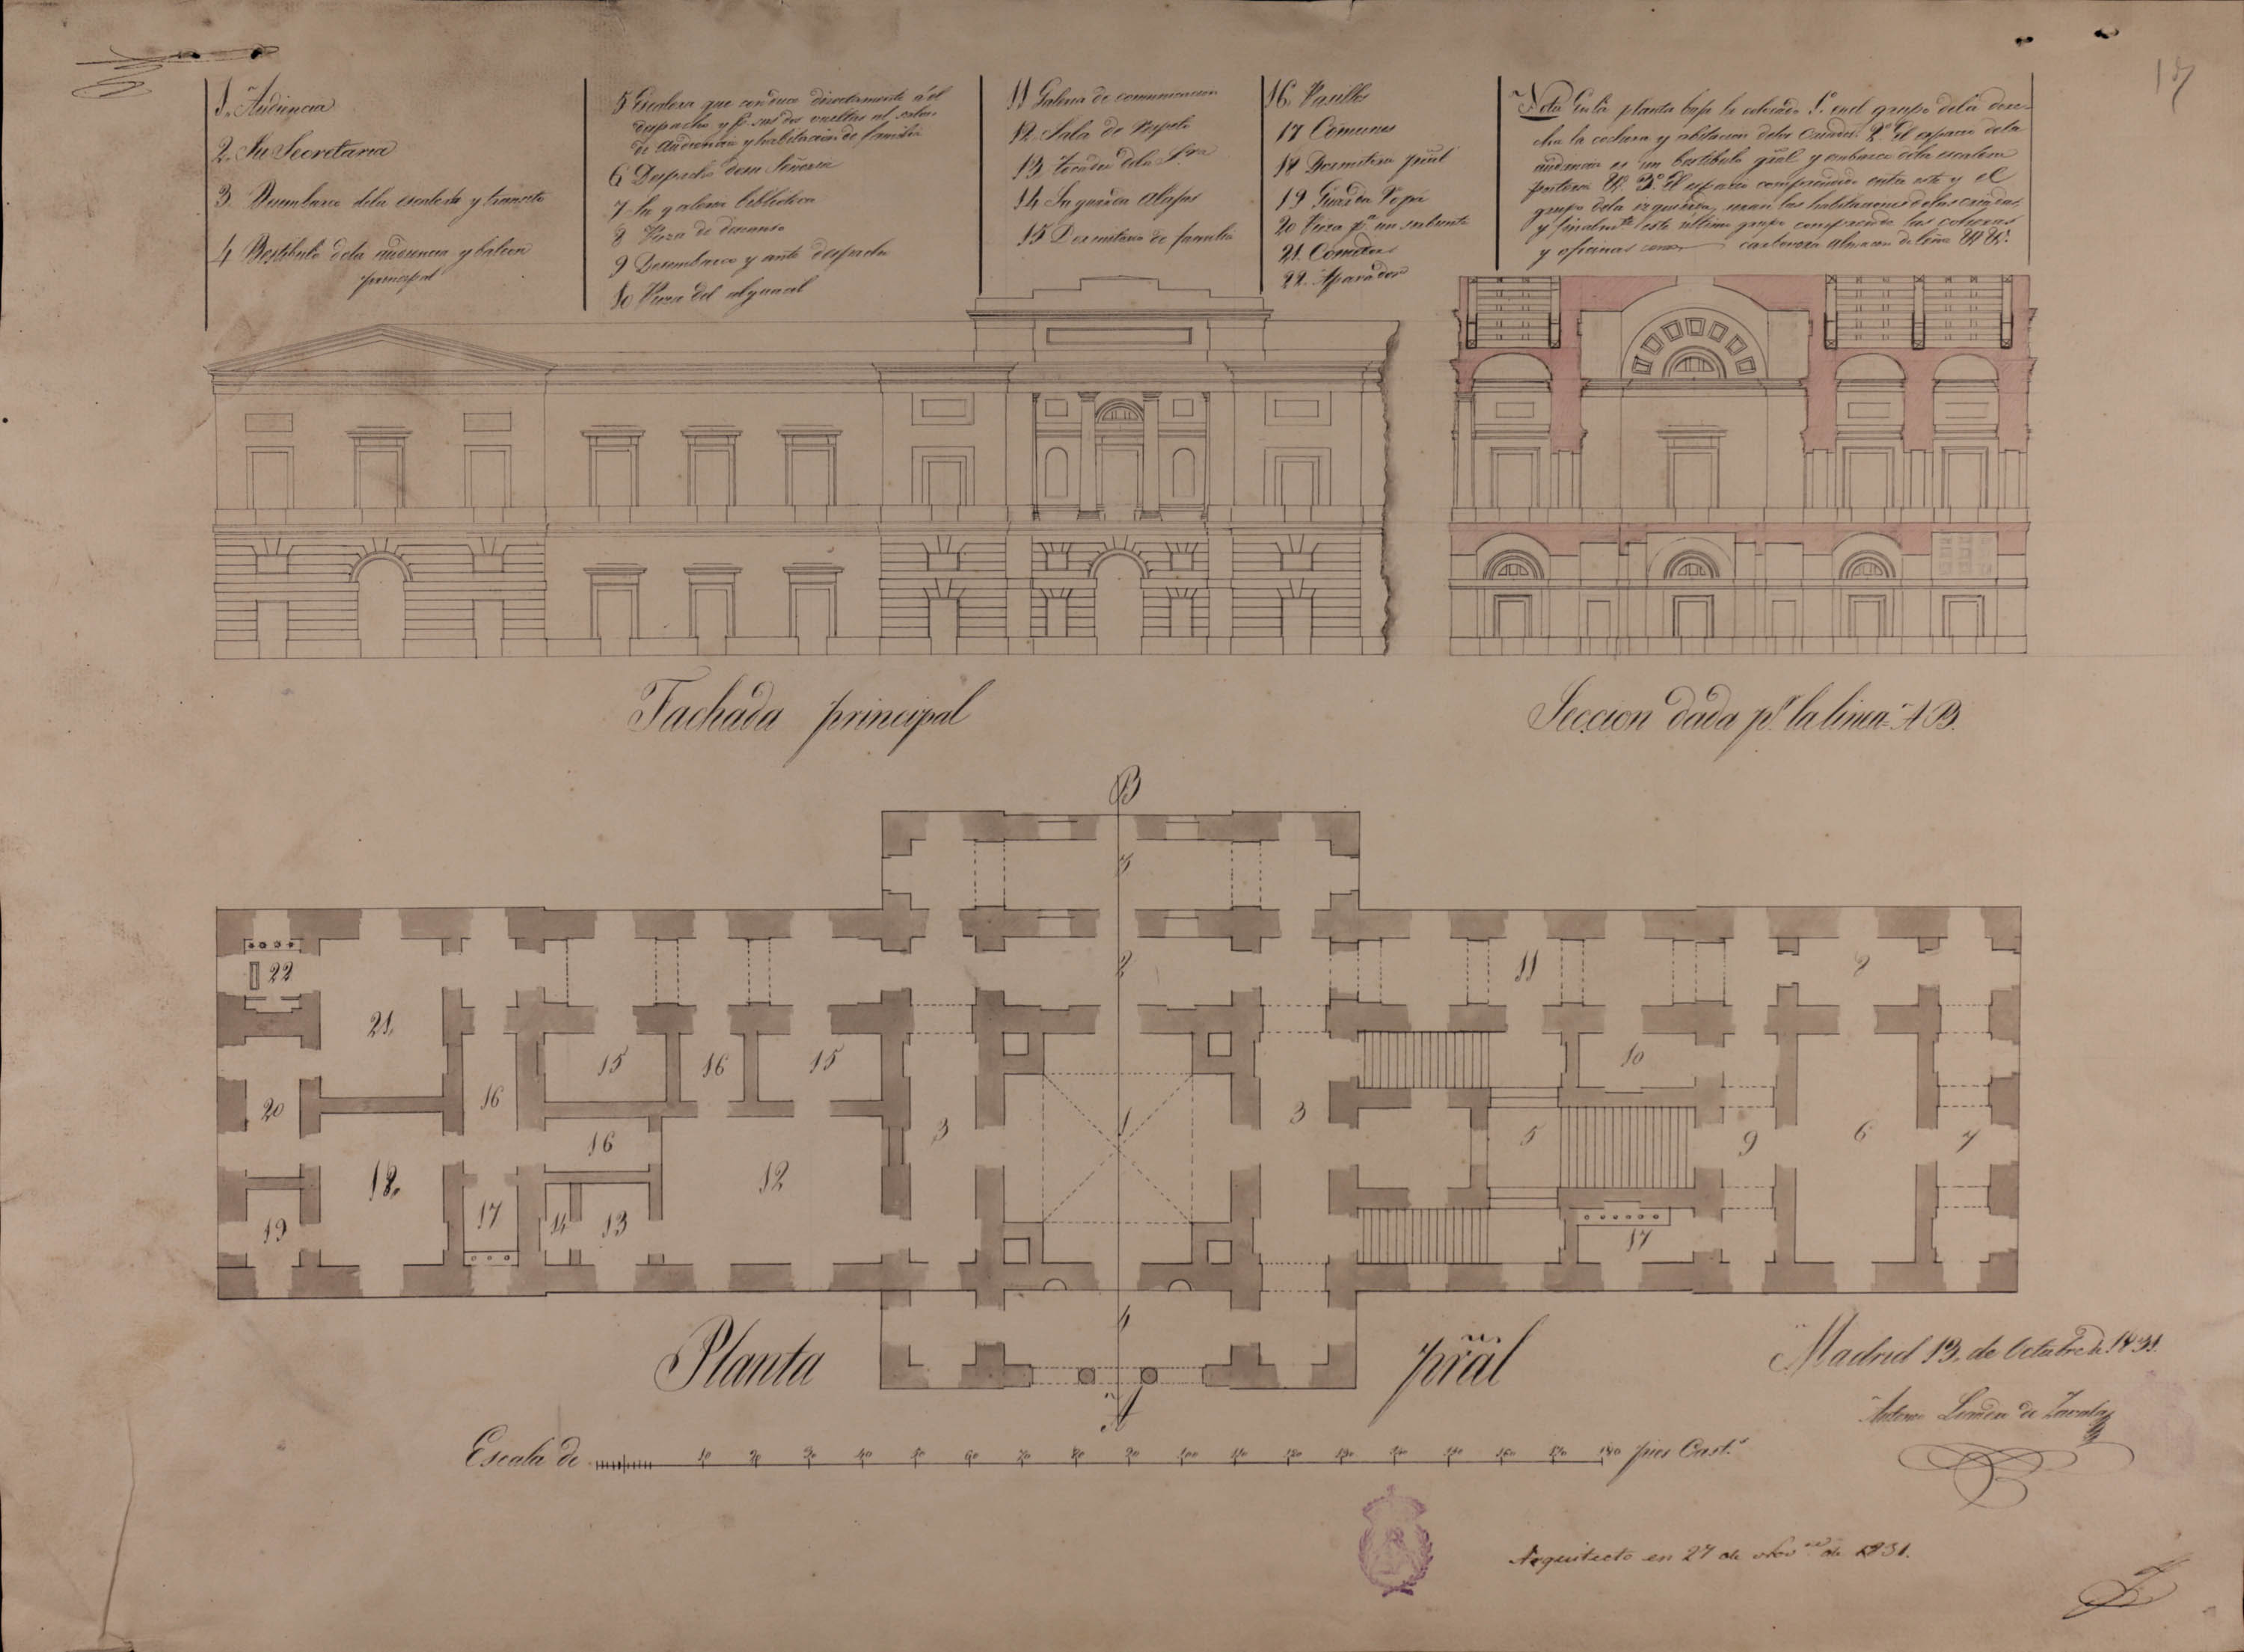 17
1. Audiencia
2. Su Secretaria
3. Desembarco dela escalera y transito
4 Bestibulo dela audiencia y balcon
principal
5 Escalera que conduce directamente á el
despacho y pr. sus dos vueltas al salon
de audiencia y habitacion de familia
6 Despacho de su Señoria
7 Su galeria biblioteca
8 Pieza de descanso
9 Desembarco y ante despacho
10 Pieza del alguacil
11 Galeria de comunicacion
12. Sala de
13 Tocador dela Sra
14 Su guarda alajas
15 Dormitorio de familia
16. Pasillos
17 Comunes
18 Dormitorio pral
19 Guarda Ropa
20 Pieza pa. un sirbiente
21. Comedor
22. Aparador
Nota En la planta baja he colocado 1º en el grupo dela dere-
cha la cochera y abitacion delos Criados. 2º El espacio dela
audiencia es un bestibulo gral y embarco dela escalera
porteria &. 3º El espacio comprendido entre este y el
grupo dela izquierda, seran las habitaciones de las criadas,
y finalmte. este ultimo grupo comprende las cocinas
y oficinas como carbonera almacen de leña &. &.
Fachada principal
Seccion dada pr. la linea A B.
B
3
2
11
2
22
21.
15
16
15
10
16
20
3
1
3
5
9
6
7
16
18.
12
17
14
13
19
17
4
A
Planta prãl
Madrid 13, de Octubre de 1831.
Antonio de Zavala
Escala de 10 20 30 40 50 60 70 80 90 100 110 120 130 140 150 160 170 180 pies Cast.s
Arquitecto en 27 de Novre. de 1831.